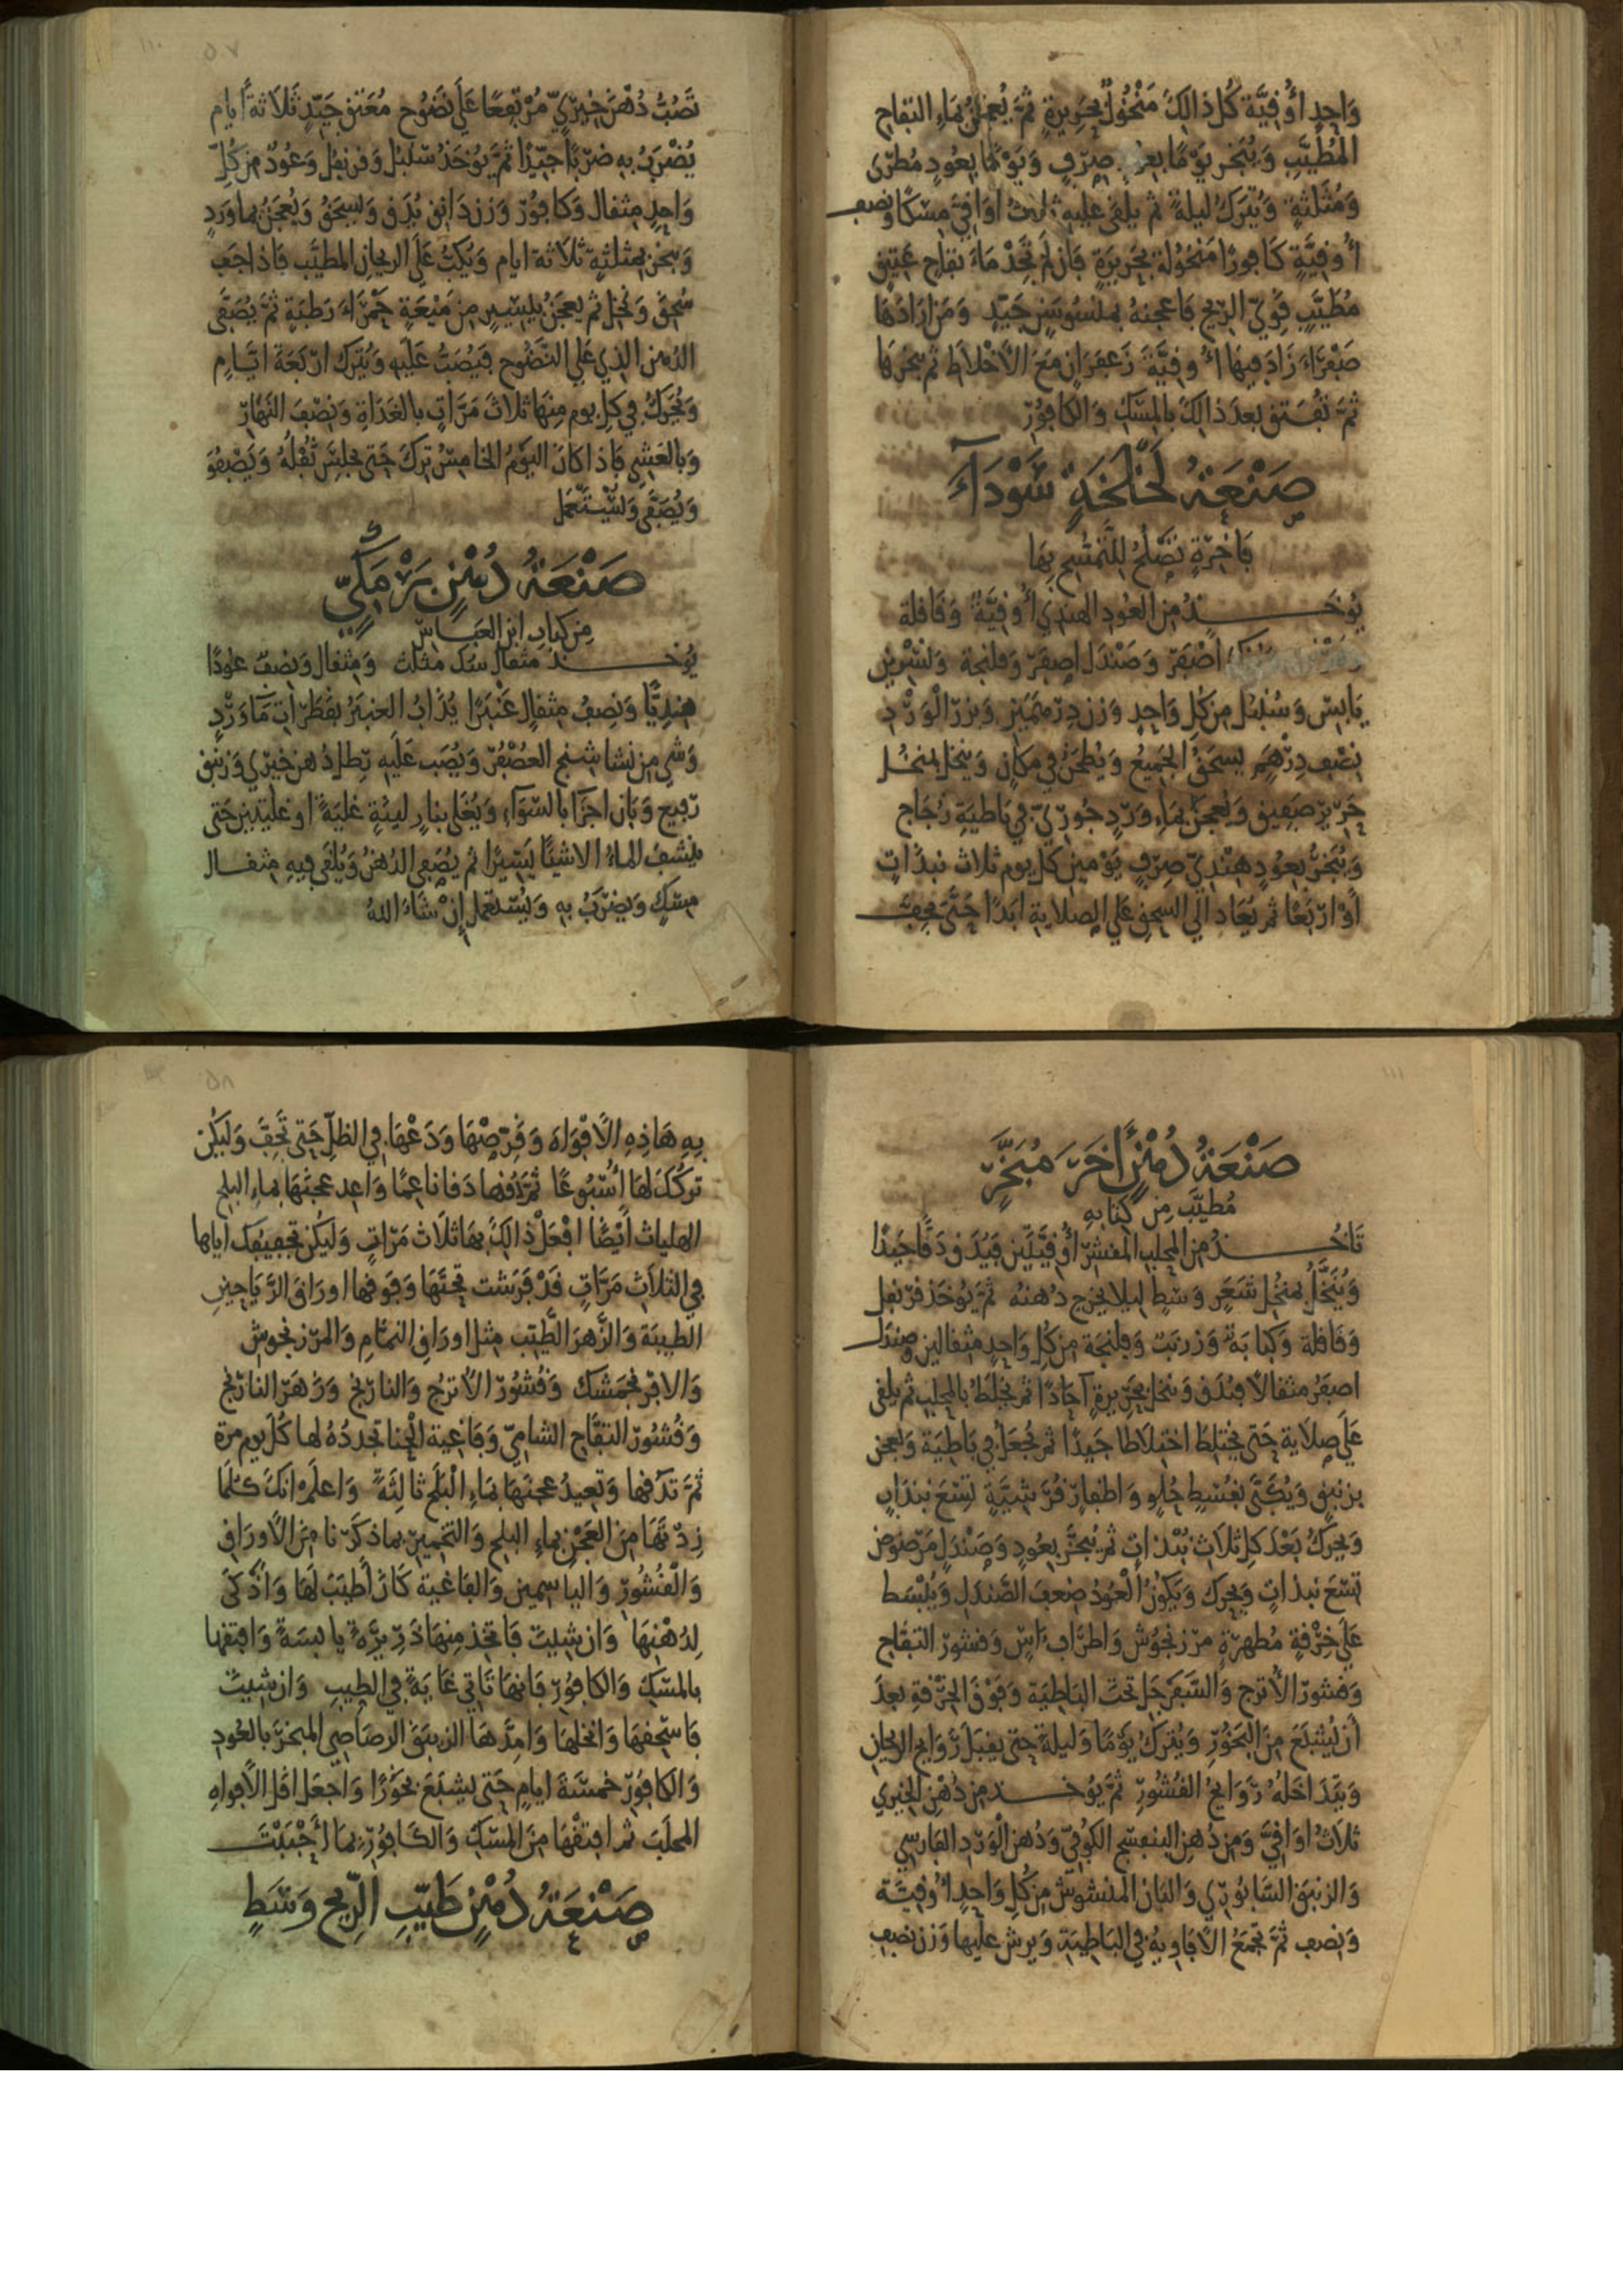 وَاحِدٍ أُوقِيَّة كُل ذَالِكَ مَنْخُولٌ بِحَرِيرَةٍ ثمَّ يُعجَنُ بمَاءِ التفاح
المُطَيَّبِ وَيُبَخر يَوْمًا بعود صِرْفٍ وَيَوْمًا بِعُودٍ مُطَرّى
وَمُثَلثةٍ وَيُترَك ليلةً ثم يلقى عليهِ ثلث اوَاقِيَّ مِسْكًا ونصف
أُوقِيَّةٍ كَافُورًا مَنْخُولة بحَرِيرَةٍ فَإن لَم تَجِدْ مَاءَ تفاحٍ عَتِيقٍ
مُطَيَّبٍ قَوِيّ الرّيحِ فَاعجنهُ بميْسُوسَنٍ جَيّدٍ وَمَن ارَادَهَا
صَفْرَاءَ زَادَ فِيهَا أُوقِيَّةَ زَعفَرَانٍ مَعَ الأَخْلاط ثم بخرهَا
ثمَّ تفتق بعدَ ذالِكَ بالمِسْكِ وَالكَافُورْ
صَنْعَةُ لَخْلَخَةٍ سَوْدَاءَ
فَاخِرَةٍ تصْلُحُ لِلتَّمَسُّحِ بِهَا
يُوخَــذُ مِن العُودِ الهندِيّ أُوقِيَّةٌ وَقَاقلة
اصْفَرْ وَصَنْدَل اصفَرْ وَفلنجة وَنسْرِين
يَابِسْ وَسُنبُل مِن كُل وَاحِدٍ وَزن دِرْهَمَين وَبزر الْوَرْدِ
نِصْف دِرْهَمٍ يسحَقُ الجَمِيعُ وَيُطحَنُ فِي مَكانٍ وَينخل بمنخل
حَرِيرٍ صَفِيقٍ وَيُعجَنُ بمَاءِ وَرْدٍ جُورِيّ فِي بَاطيَةِ زُجَاج
وَيُبَخَّرُ بِعُودٍ هِنْدِيّ صِرْفٍ يَوْمَينِ كل يوم ثلاث نبذَاتٍ
أَوْ ارْبَعًا ثم يُعَاد الَى السحقِ عَلَى الصلايةِ ابَدًا حَتَّى يَجِفَّ
تَصُبُّ دُهْنَ خِيرِيّ مُرْتفِعًا عَلَى نَضُوح مُعَتق جَيّدٍ ثلاثة أيام
يُضْرَبُ بِهِ ضَرْبًا جَيّدًا ثمَّ يُؤخَذُ سُنبُل وَقرنفل وَعُودٌ مِن كُلّ
وَاحِدٍ مِثقال وَكَافُورْ وَزن دَانِق يُدَق وَيُسحَقُ وَيُعجَنُ بماوَردٍ
وَيبخرُ بمثلثةٍ ثلاثة ايام وَيُكبُّ عَلَى الريحانِ المطيَّب فاذا جَف
سُحِقَ وَنُخِل ثم يعجَنُ بيَسِيرٍ مِن مَيْعَةٍ حَمْرَاءَ رَطبَةٍ ثمَّ يُصَفَّى
الدُهن الذِي عَلَى النَّضُوح فيُصَبُّ عَلَيهِ وَيُترَك ارْبَعَة ايَّامٍ
وَيُحَرّكُ فِي كل يوم مِنهَا ثلاثَ مَرّاتٍ بالغَدَاةِ وَنِصْفَ النَهَارْ
وَبالعَشِيّ فَاذا كانَ اليَوْمُ الخامِسُ تُرِكَ حَتى يَجلِسَ ثُفْلُهُ وَيَصْفُوَ
وَيُصَفَّى وَيُسْتَعمَل
صَنْعَةُ دُهْنٍ بَرْمَكِيّ
مِن كتابِ ابن العَبَّاسْ
يُوخَــذُ مثقال سُك مثلث وَمِثقال وَنِصْفٌ عُودًا
هِندِيًّا وَنِصف مِثقالٍ عَنْبَرًا يُذَابُ العنبَرُ بقَطَرَاتِ مَآءِ وَرْدٍ
وَشي مِن نشا شنج العُصْفُرْ وَيُصَب عَلَيهِ رطل دُهن خيري وَزنبق
رَفِيع وَبَان اجزَا بالسَّوَآءِ وَيُغْلَى بنارٍ لينةٍ غليَةً او غليتينِ حَتى
ينشف الماءُ الا شيئًا يَسِيرًا ثم يُصَفَّى الدُهْنُ وَيُلقَى فِيهِ مِثقــال
مِسْكٍ وَيضرَبُ بهِ وَيُسْتعمَل إنْ شَاءَ اللهُ
صَنْعَةُ دُهْنٍ أخَرَ مُبَخَّرٍ
مُطيَّب مِن كتابِهِ
تَأخُــذُ مِن المحلب المقشر أُوقِيَّتَين فَيُدَق دَقًّا جَيّدًا
وَيُنَخَّلُ بمنخُل شَعَرٍ وَسَطٍ ليلا يخرج دُهنهُ ثمَّ يُوخَذ قرنفل
وَقَاقلة وَكَبَابَةٌ وَزرنَبٌ وَفلنجَة مِن كُل وَاحِدٍ مثقالين وصندل
اصفَرُ مثقالا فيُدَق وَينخل بحَرِيرةٍ آحَادًا ثم يخلَطُ بالمحلب ثم يلقى
عَلَى صلاية حَتى يَختلِطَ اختِلاطا جَيدًا ثم تُجعَلُ في بَاطيَة وَيعجن
بزنبقٍ وَيُكَبَّى بقُسْطٍ حُلوٍ وَاظفارٍ قُرَشِيَّةٍ تِسْعَ نبذَاتٍ
وَيحرّكُ بَعْدَ كل ثلاثِ نَبْذَاتٍ ثم يُبَخَّرُ بعُودٍ وَصَنْدَلٍ مَرْضوض
تسْعَ نبذاتٍ وَيحرّك وَيَكُونُ الْعُودُ ضِعفَ الصَّندَلِ وَيُبْسَط
عَلَى خِرْقةٍ مُطهرةٍ مرزنجُوش وَاطرَاف ءَاسٍ وَقشور التفاح
وَقشور الأترجِ وَالسَّفَرجَل تحتَ البَاطِيَة وَفَوْقَ الخِرْقةِ بعدَ
أن يُشبَعَ مِنَ البخُورِ وَيُترَكُ يَوْمًا وَليلةً حَتى يقبَلَ رَوَايح الريحَانِ
وَتتدَاخَلهُ رَوَايِحُ القُشُورِ ثمَّ يُوخَــذ مِن دُهْنِ الخِيرِي
ثلاثُ اوَاقِيَّ وَمِن دُهنِ البنفسَج الكُوفِيّ وَدُهنِ الْوَرْدِ الفَارسِي
وَالزنبقِ السَّابُورِي وَالبَانِ المنشُوشِ مِن كُلِ وَاحِدٍ أُوقِيَّة
وَنِصف ثمَّ تجمَعُ الأفاوِيهُ في البَاطِيَة وَيرش عليها وَزن نصف
بِهِ هَاذِهِ الأفْوَاه وَقَرِّصْهَا وَدَعْهَا فِي الظلّ حَتى تَجِفَّ وَليَكُن
تركُكَ لهَا أُسْبُوعًا ثمَّ دُقها دَقا ناعِمًا وَاعِد عجنَهَا بماءِ البلح
الهليات أَيْضًا افْعَلْ ذالِكَ بهَا ثلاثَ مَرّاتٍ وَليَكُن تجفِيفك اياها
فِي الثلاثِ مَرَّاتٍ قَدْ فَرَشت تحتَهَا وَفَوقهَا اورَاقَ الرَّيَاحِين
الطيبَة وَالزَّهرَ الطَّيّب مِثل اورَاق النمّامِ وَالمرزنجوش
وَالافرنجمشك وَقُشُورْ الأترُج وَالنارنج وَزهر النارنج
وَقُشُورْ التفَّاحِ الشامِيّ وَفَاغِية الْحِنا تجددُهُ لها كُلَّ يوم مرة
ثمَّ تدُقها وَتعِيدُ عجنَهَا بمَاءِ الْبَلَحِ ثالِثَةً وَاعلَمْ انكَ كلمَا
زِدْتَهَا مِن العَجْنِ بماءِ البلح وَالتخمِير بماذكَرْنا مِن الأورَاق
وَالْقُشُورْ وَالياسمِين وَالفاغِية كَانَ أَطيَبَ لَهَا وَاذكَى
لِدُهْنِهَا وَان شِيت فَاتخِذ مِنهَا ذَرِيرَةً يابسَةً وَافتِقها
بالمِسْكِ وَالكافُورْ فَانهَا تَاتي غَايَةً فِي الطِيبِ وَان شِيتَ
فَاسْحقهَا وَانخلهَا وَامِدَّهَا الزنبَقَ الرصَاصِي المبخرَ بالعُودِ
وَالكافُورْ خَمسَةَ ايامٍ حَتى يشبَعَ بخُورًا وَاجعَل اقل الأفواهِ
المحلَبَ ثم افتِقْهَا مِنَ المِسْكِ وَالكَافُورْ بمَا أَحْبَبْتَ
صَنْعَةُ دُهْنٍ طَيّبِ الرِّيحِ وَسَطٍ